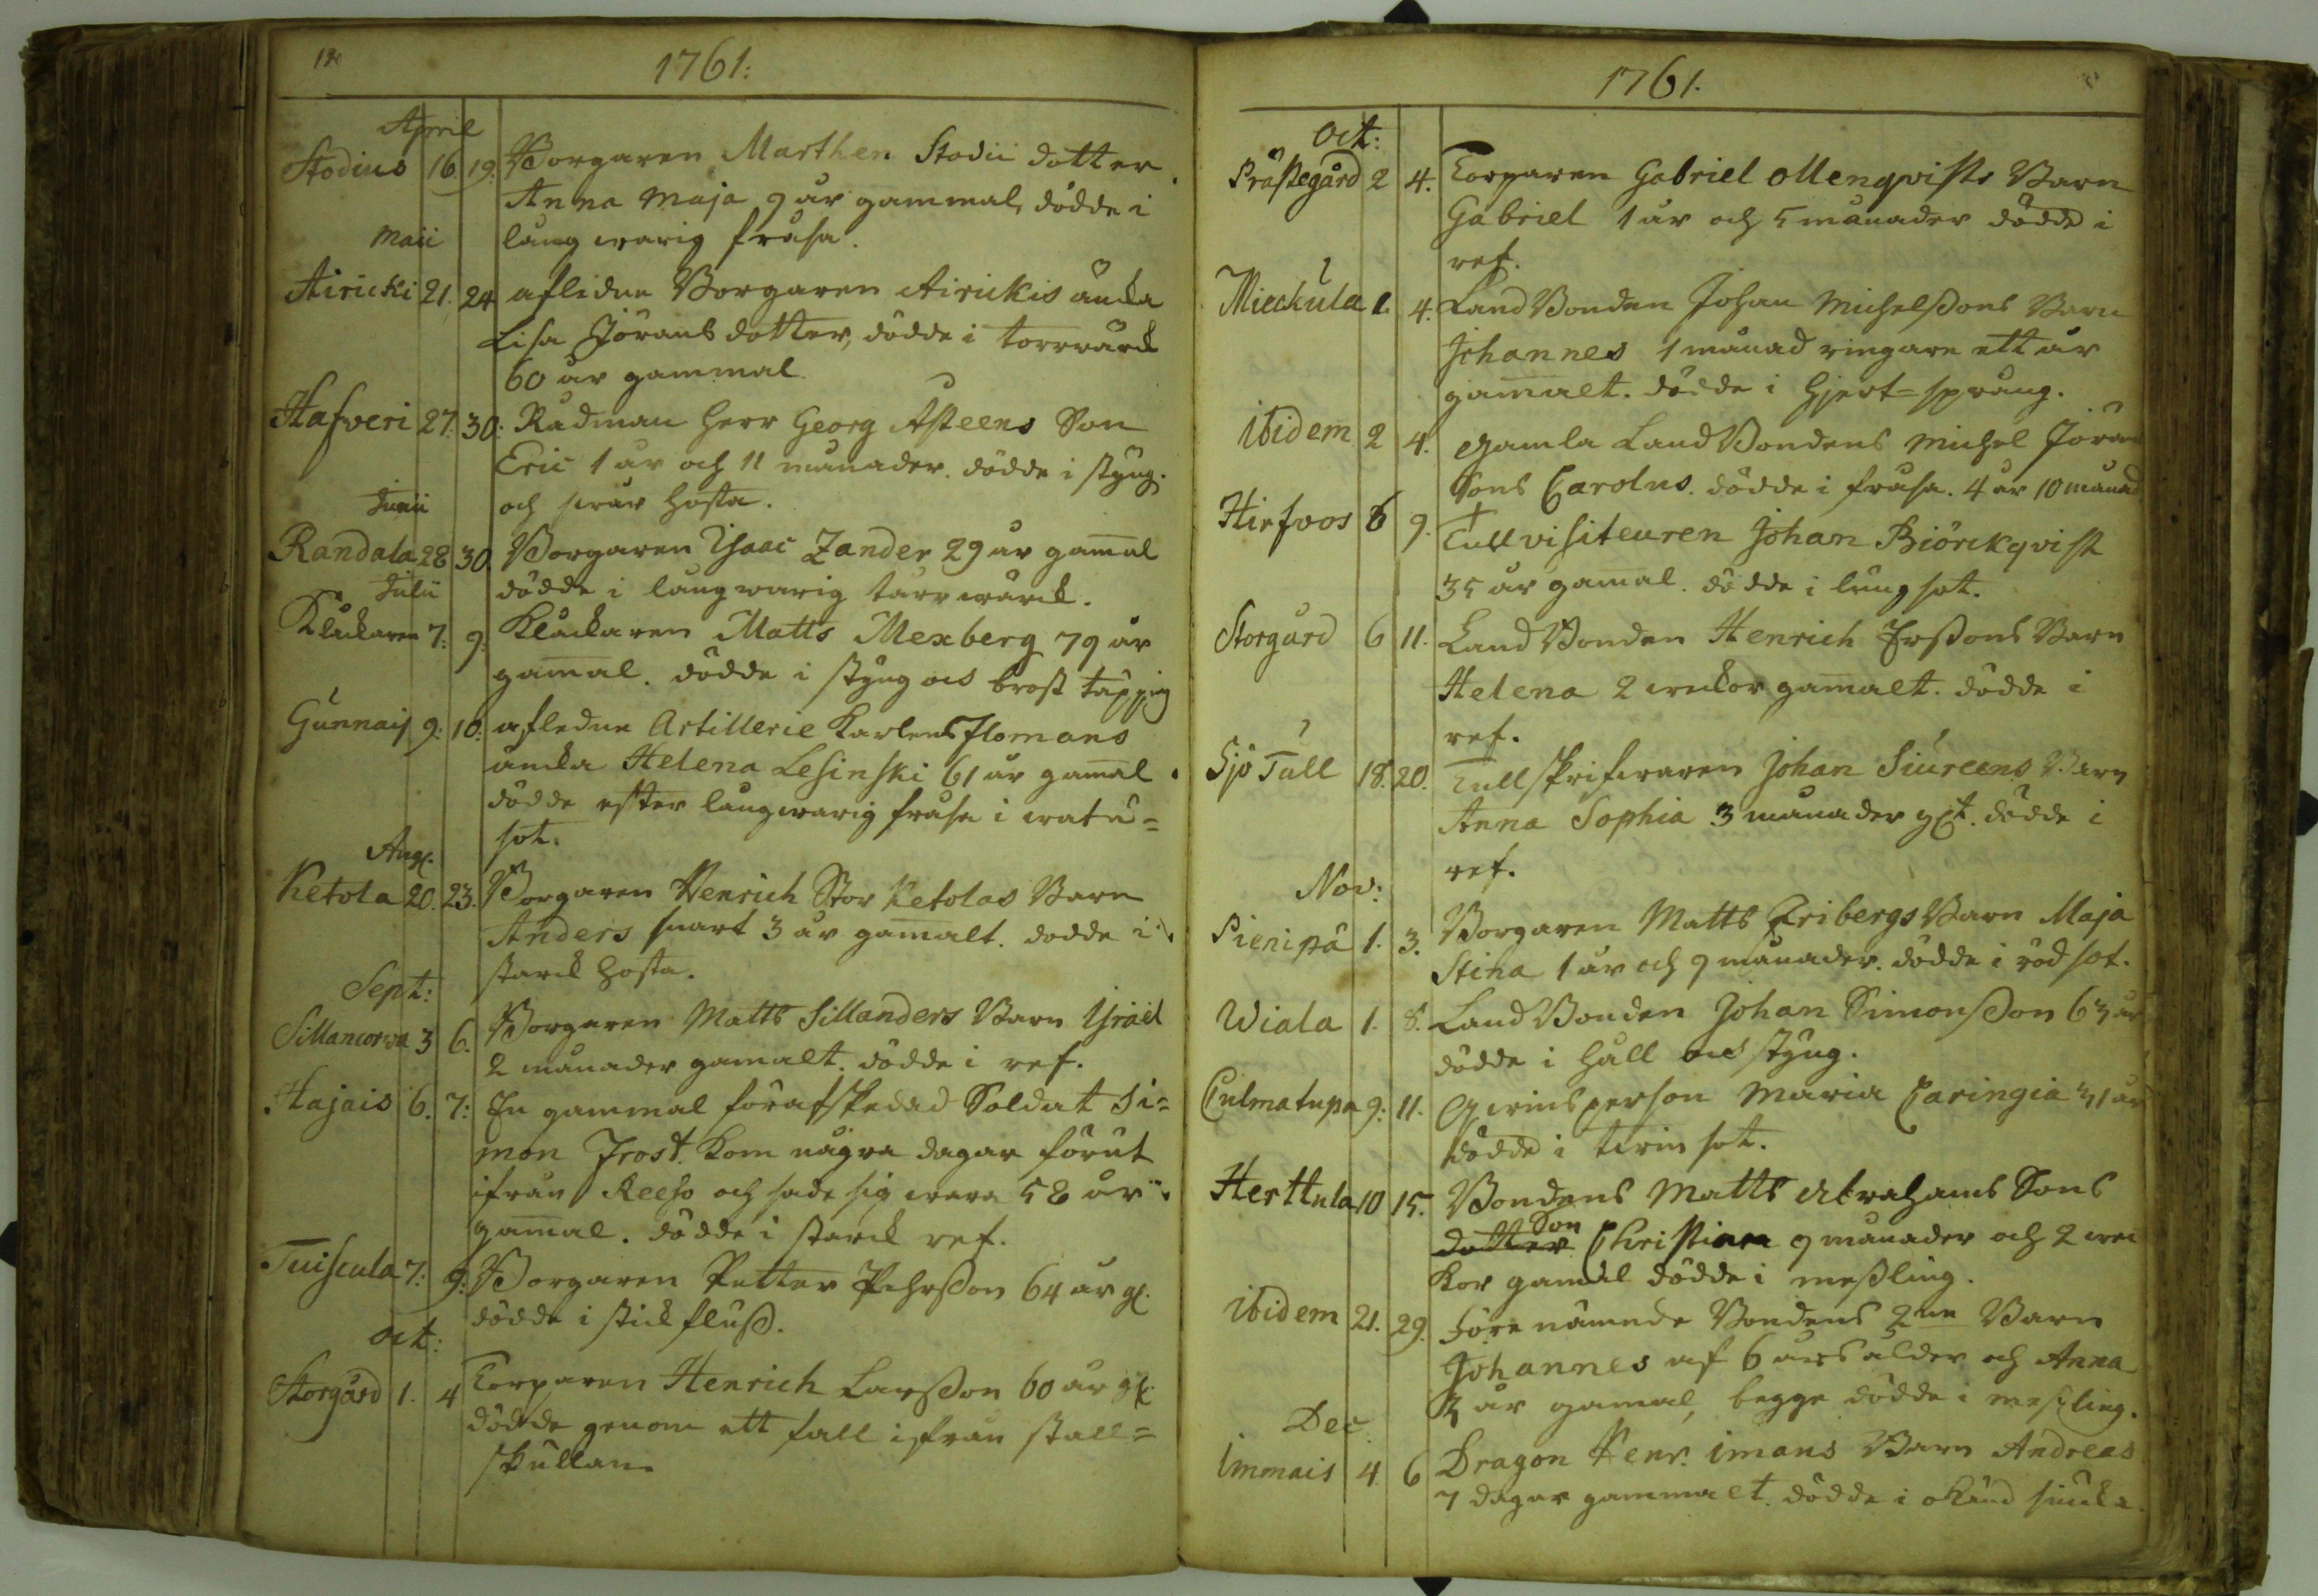 1761:
April
Stodius 16. 19. Borgaren Marthen Stodii dotter
Anna Maja 9 år gammal, dödde i
lång warig fråsa.
Maii
Airicki 21. 24 afledne Borgaren Airickis äncka
Lisa Jörans dotter, dödde i torrwärck
60 år gammal
Hafveri 27. 30. Rådman Herr Georg Asteens Son
Eric 1 år och 11 månader. dödde i styng.
och swår hosta.
Junii
Randala 28 30. Borgaren Isaac Zander 29 år gamal
dödde i långwarig torrwärck.
Julii
Klåckaren 7. 9. Klåckaren Matts Mexberg 79 år
gamal. dödde i styng och brost täpping
Gunnais 9. 10. afledne Artillerie Karlens Flomans
äncka Helena Lesinski 61 år gamal.
dödde efter långwarig fråsa i watu=
sot.
Aug.
Ketola 20. 23. Borgaren Henrich Stor Ketolas Barn
Anders snart 3 år gamalt. dödde i
starck hosta.
Sept:
Sillancorva 3 6. Borgaren Matts Sillanders Barn Israël
2 månader gamalt. dödde i ref.
Hajais 6. 7. En gammal förafskedad Soldat Si=
mon Frost. Kom några dagar förut
ifrån Reeso och sade sig wara 58 år
gamal. dödde i starck ref.
Tuiscula 7. 9. Borgaren Petter Pehrsson 64 år gl.
dödde i stickfluss.
Oct:
Storgård 1. 4 Torparen Henrich Larsson 60 år gl.
dödde genom ett fall ifrån stall=
skullan
1761.
Oct:
Prästegård 2 4. Torparen Gabriel Menqvists Barn
Gabriel 1 år och 5 månader dödde i
ref.
Mieckula 1. 4. LandBonden Johan Michelssons Barn
Johannes 1 månad ringare ett år
gamalt. dödde i Hjert=språng.
ibidem 2 4. gamla LandBondens Michel Jörans
Sons Carolus. dödde i fråsa. 4 år 10 månad
Hirfvos 6 9. Tullvisiteuren Johan Biörckqvist
35 år gamal. dödde i lungsot.
Storgård 6 11. LandBonden Henrich Erssons Barn
Helena 2 weckor gamalt. dödde i
ref.
Sjö Tull 18. 20. Tullskrifwaren Johan Siureens Barn
Anna Sophia 3 månader glt. dödde i
ref.
Nov:
Pienipä 1. 3. Borgaren Matts Fribergs Barn Maja
Stina 1 år och 9 månader. dödde i rödsot.
Wiala 1. 8. LandBonden Johan Simonsson 63 år
dödde i håll och styng.
Culmatupa 9. 11. Qwinsperson Maria Caringia 31 år
dödde i twinsot.
Herttula 10 15. Bondens Matts Abrahams Sons
dotter Son Christian 9 månader och 2 wec
kor gamal dödde i messling.
ibidem 21. 29. Före nämnde Bondens 2ne Barn
Johannes af 6 års ålder och Anna
3 år gamal, begge dödde i messling.
Dec
Immais 4 6 Dragon Henr. imans Barn Andreas
7 dagar gammalt. dödde i okänd siucka.